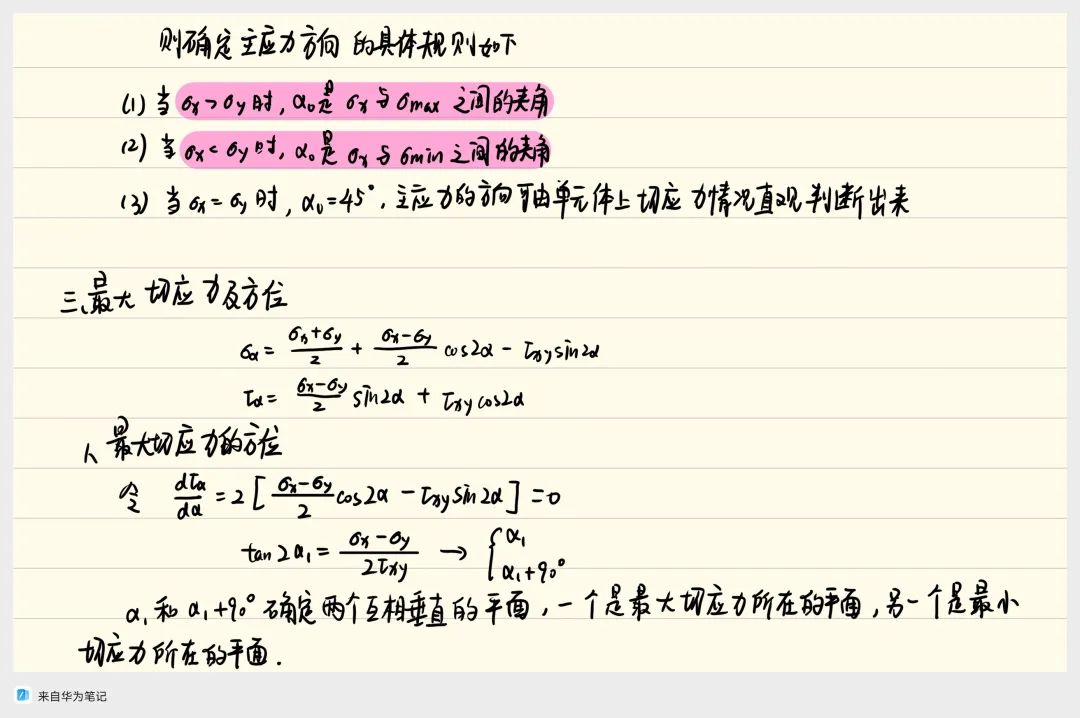 则确定主应力方向的具体规则如下
(1) 当σx>σy时, α₀是σx与σmax之间的夹角
(2) 当σx<σy时, α₀是σx与σmin之间的夹角
(3) 当σx=σy时, α₀=45°, 主应力的方向可由单元体上切应力情况直观判断出来
三、最大切应力及方位
σα = (σx+σy)/2 + (σx-σy)/2 cos2α - τxy sin2α
τα = (σx-σy)/2 sin2α + τxy cos2α
1、最大切应力的方位
令 dτα/dα = 2[(σx-σy)/2 cos2α - τxy sin2α] = 0
tan2α₁ = (σx-σy)/2τxy → { α₁
α₁+90°
α₁和α₁+90°确定两个互相垂直的平面, 一个是最大切应力所在的平面, 另一个是最小
切应力所在的平面.
来自华为笔记